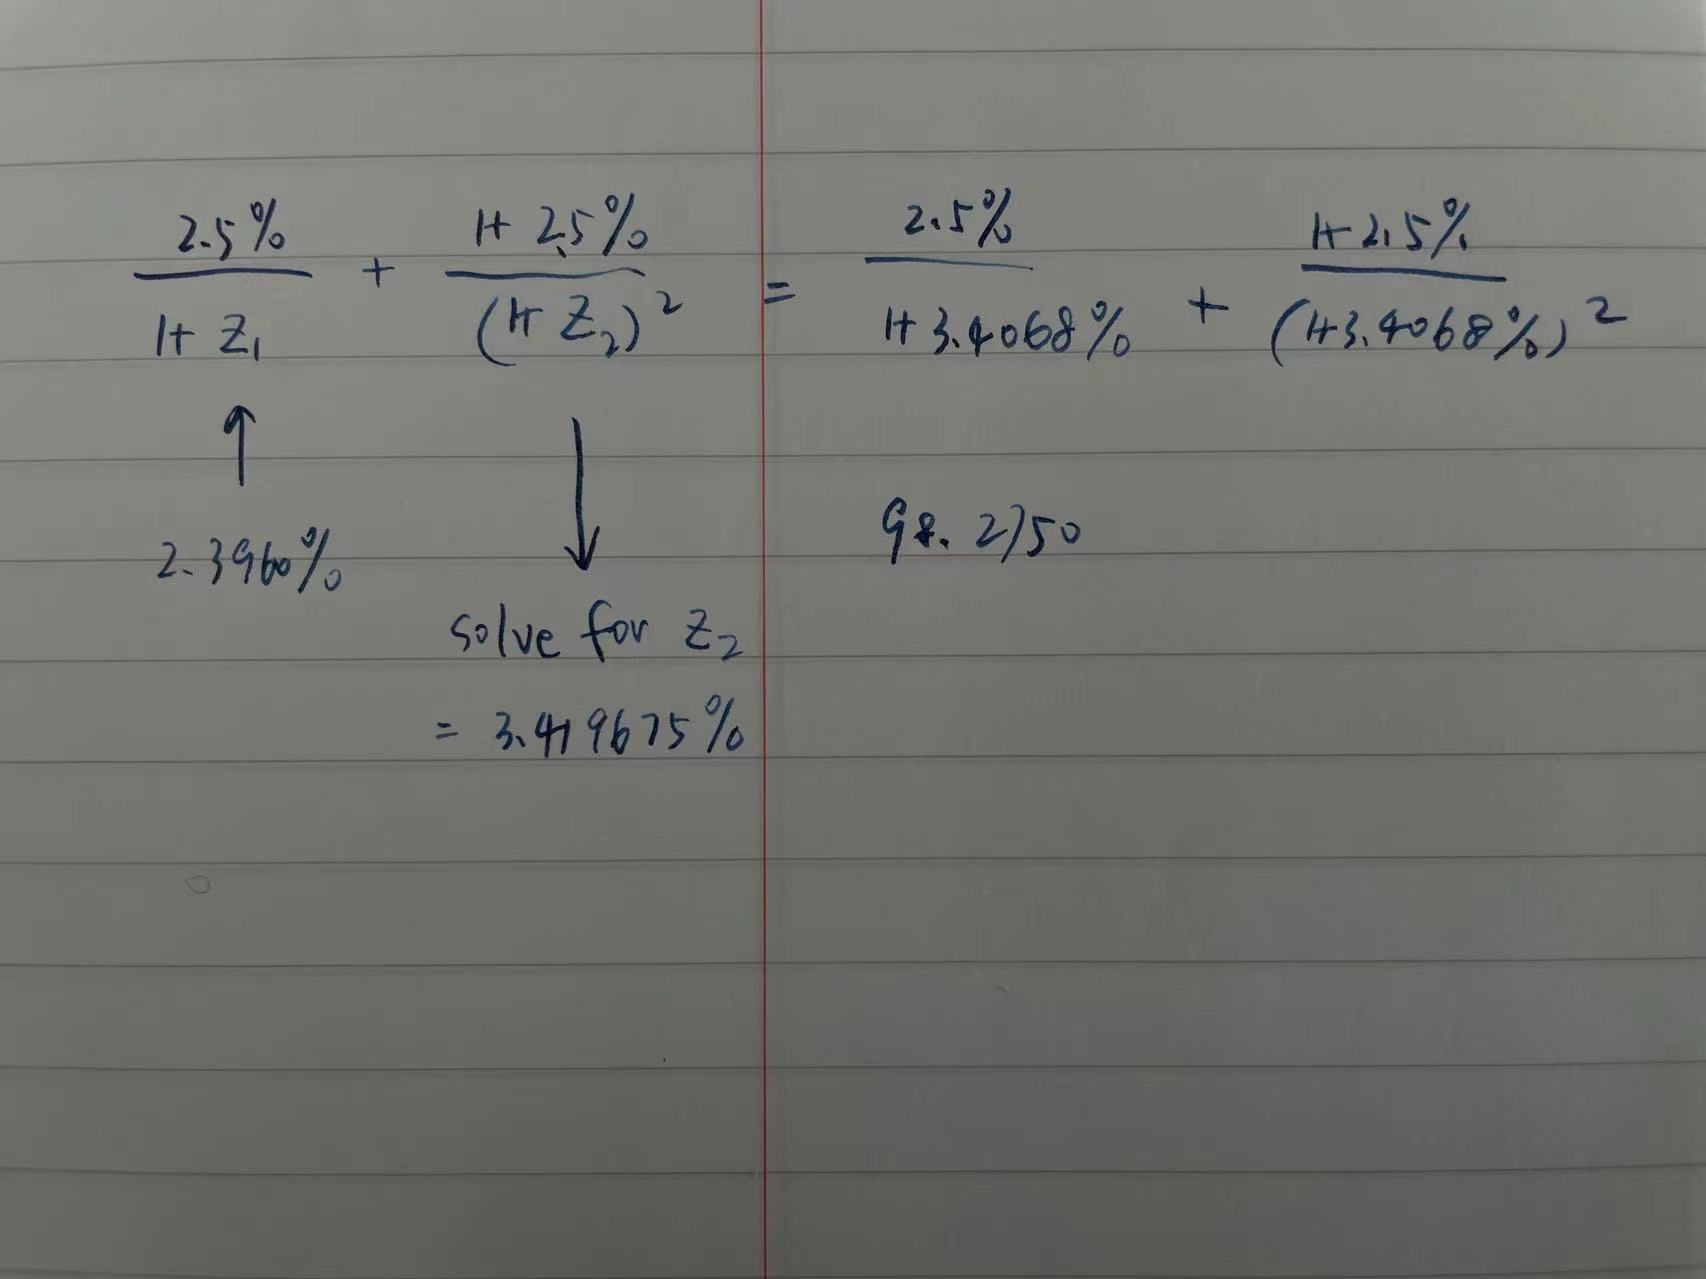 2.5% / 1+ Z₁ + 1+ 2.5% / (1+ Z₂)² = 2.5% / 1+3.4068% + 1+2.5% / (1+3.4068%)²
↑ ↓
2.3960% 98.2750
solve for Z₂
= 3.419675%